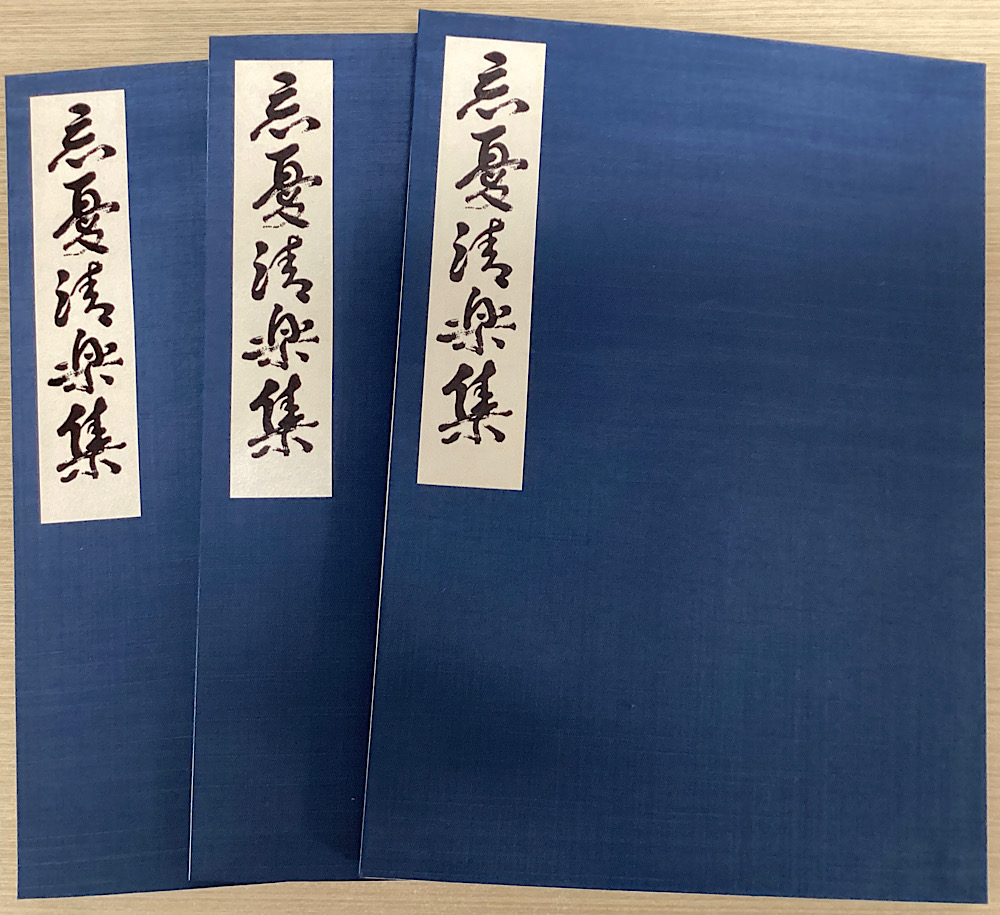 忘憂清楽集
忘憂清楽集
忘憂清楽集